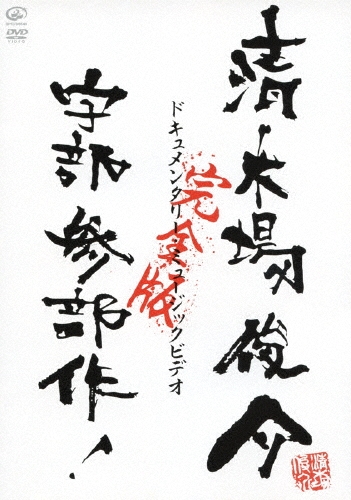 清木場俊介
ドキュメンタリー・ミュージックビデオ
完全版
宇部参部作!
DVD
VIDEO